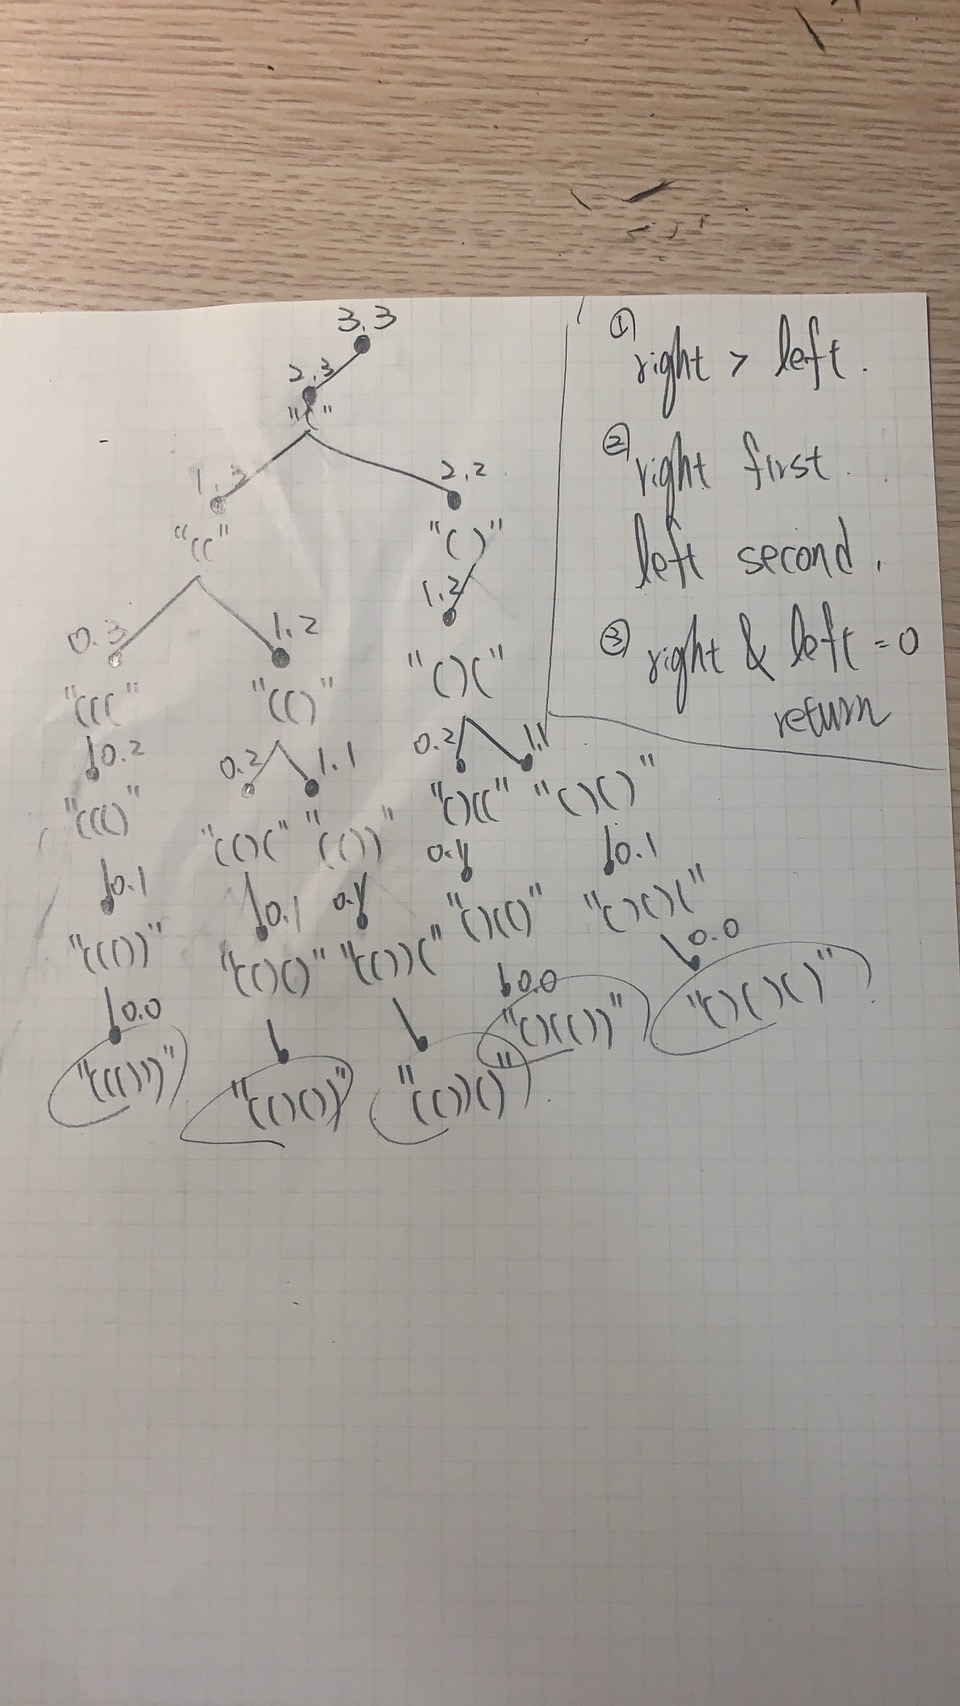 3.3
2.3
"("
1.3
2.2
"(("
"()"
1.2
0.3
1.2
"((("
"(()"
"()("
0.2
0.2
1.1
0.2
1.1
"((()"
"(()("
"(())"
"()(("
"()()"
0.1
0.1
0.1
0.1
0.1
"((())"
"(()()"
"(())("
"()(()"
"()()("
0.0
0.0
0.0
"((()))"
"(()())"
"(())()"
"()(())"
"()()()"
①
right > left.
②
right first.
left second.
③
right & left = 0
return